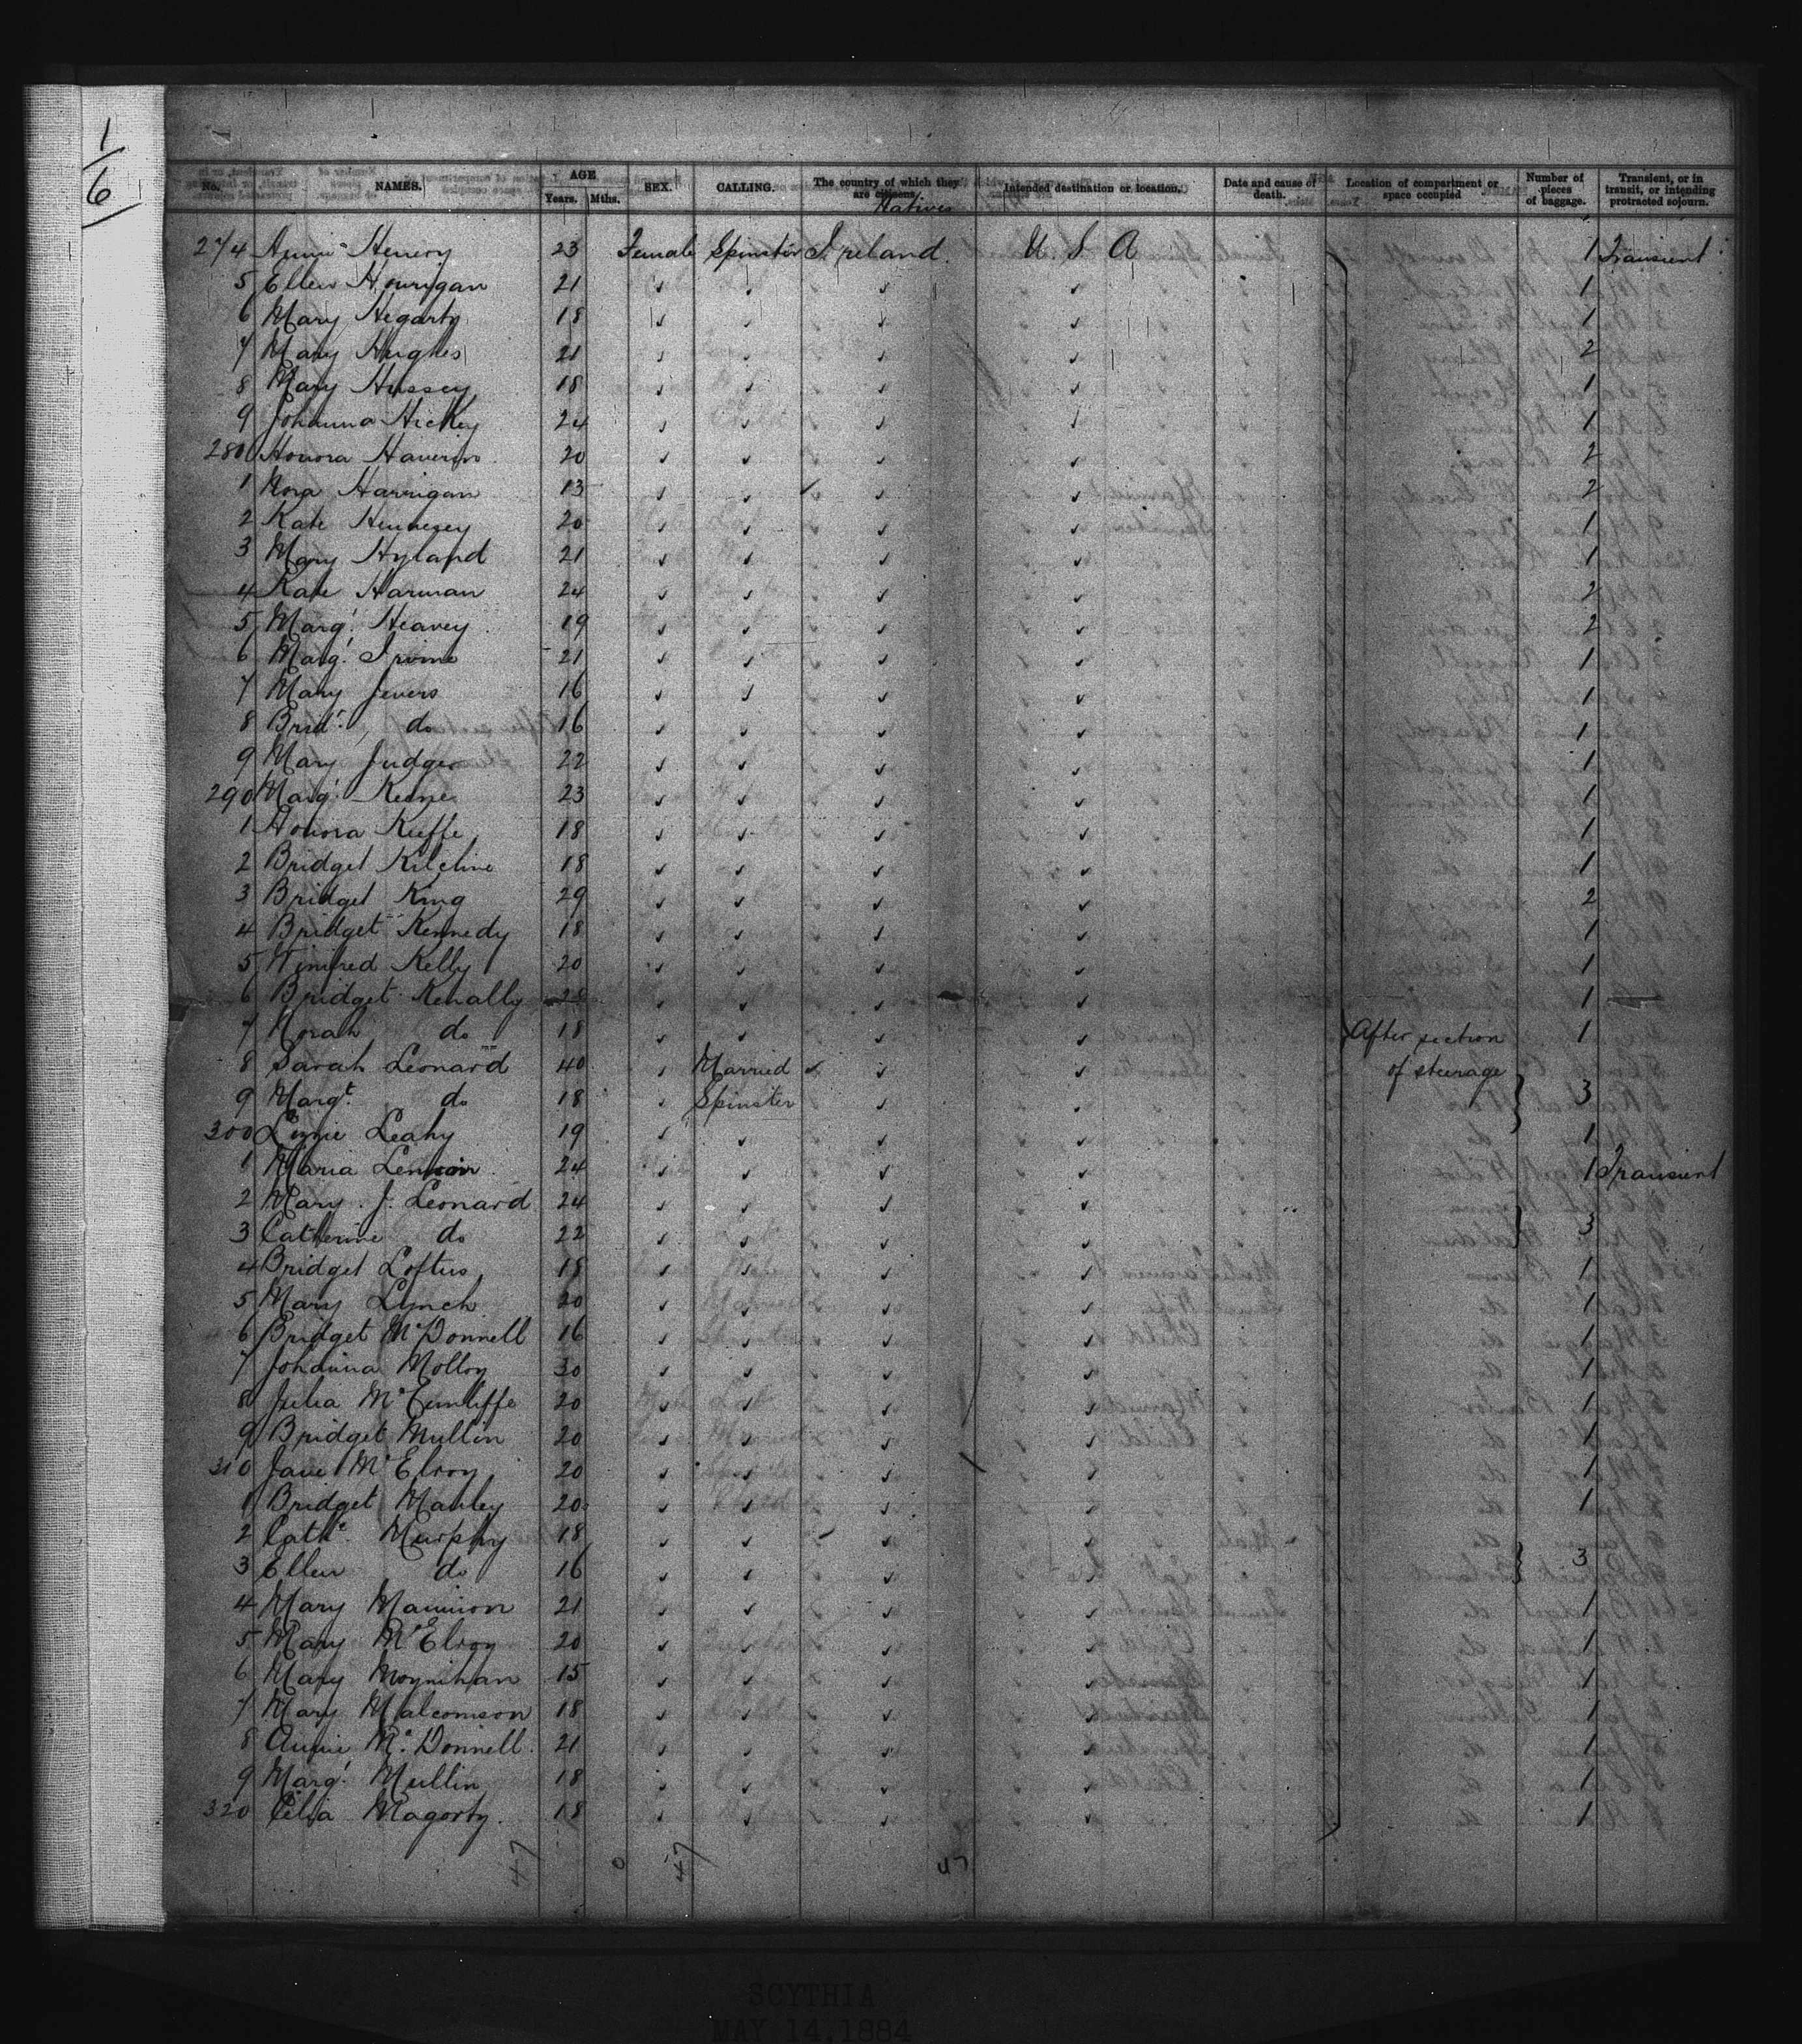 1/6
No. NAMES. AGE Years. Mths. SEX. CALLING. The country of which they are citizens. Natives Intended destination or location. Date and cause of death. Location of compartment or space occupied Number of pieces of baggage. Transient, or in transit, or intending protracted sojourn.
274 Annie Henery 23 Female Spinster Ireland U S A 1 Transient
5 Ellen Hourigan 21 1
6 Mary Hegarty 18 1
7 Mary Hughes 21 2
8 Mary Hussey 18 1
9 Johanna Hickey 24 1
280 Honora 20 2
1 Nora Harrigan 13 2
2 Kate Hennesey 20 1
3 Mary Hyland 21 1
4 Kate Harman 24 2
5 Margt Heavey 19 2
6 Margt Irvine 21 1
7 Mary Jevers 16 1
8 Bridt do 16 1
9 Mary Judge 22 1
290 Margt 23 1
1 Honora Keeffe 18 1
2 Bridget Kilcline 18 1
3 Bridget King 29 2
4 Bridget Kennedy 18 1
5 Winifred Kelly 20 1
6 Bridget Kenally 1
7 Norah do 18 After section 1
8 Sarah Leonard 40 Married of steerage
9 Margt do 18 Spinster 3
300 Lizzie Leahy 19 1
1 Maria Lennon 24 1 Transient
2 Mary J. Leonard 24
3 Catherine do 22 3
4 Bridget Loftus 18 1
5 Mary Lynch 20 1
6 Bridget McDonnell 16 1
7 Johanna Molloy 30 1
8 Julia 20 1
9 Bridget Mullin 20 1
310 Jane McElroy 20 1
1 Bridget Manley 20 1
2 Cathe Murphy 18
3 Ellen do 16 3
4 Mary Mannion 21 1
5 Mary McElroy 20 1
6 Mary Moynihan 15 1
7 Mary Malcomson 18 1
8 Annie McDonnell 21 1
9 Margt Mullin 18 1
320 Celia Magorty 18 1
47 0 47 47
SCYTHIA
MAY 14, 1884